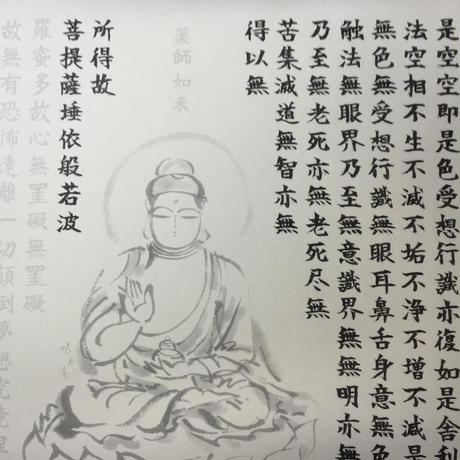 是空空即是色受想行識亦復如是舍利
法空相不生不滅不垢不浄不増不減是
無色無受想行識無眼耳鼻舌身意無色
触法無眼界乃至無意識界無無明亦無
乃至無老死亦無老死尽無
苦集滅道無智亦無
得以無
薬師如来
所得故
菩提薩埵依般若波
羅蜜多故心無罣礙無罣礙
故無有恐怖遠離一切顛倒夢想究竟